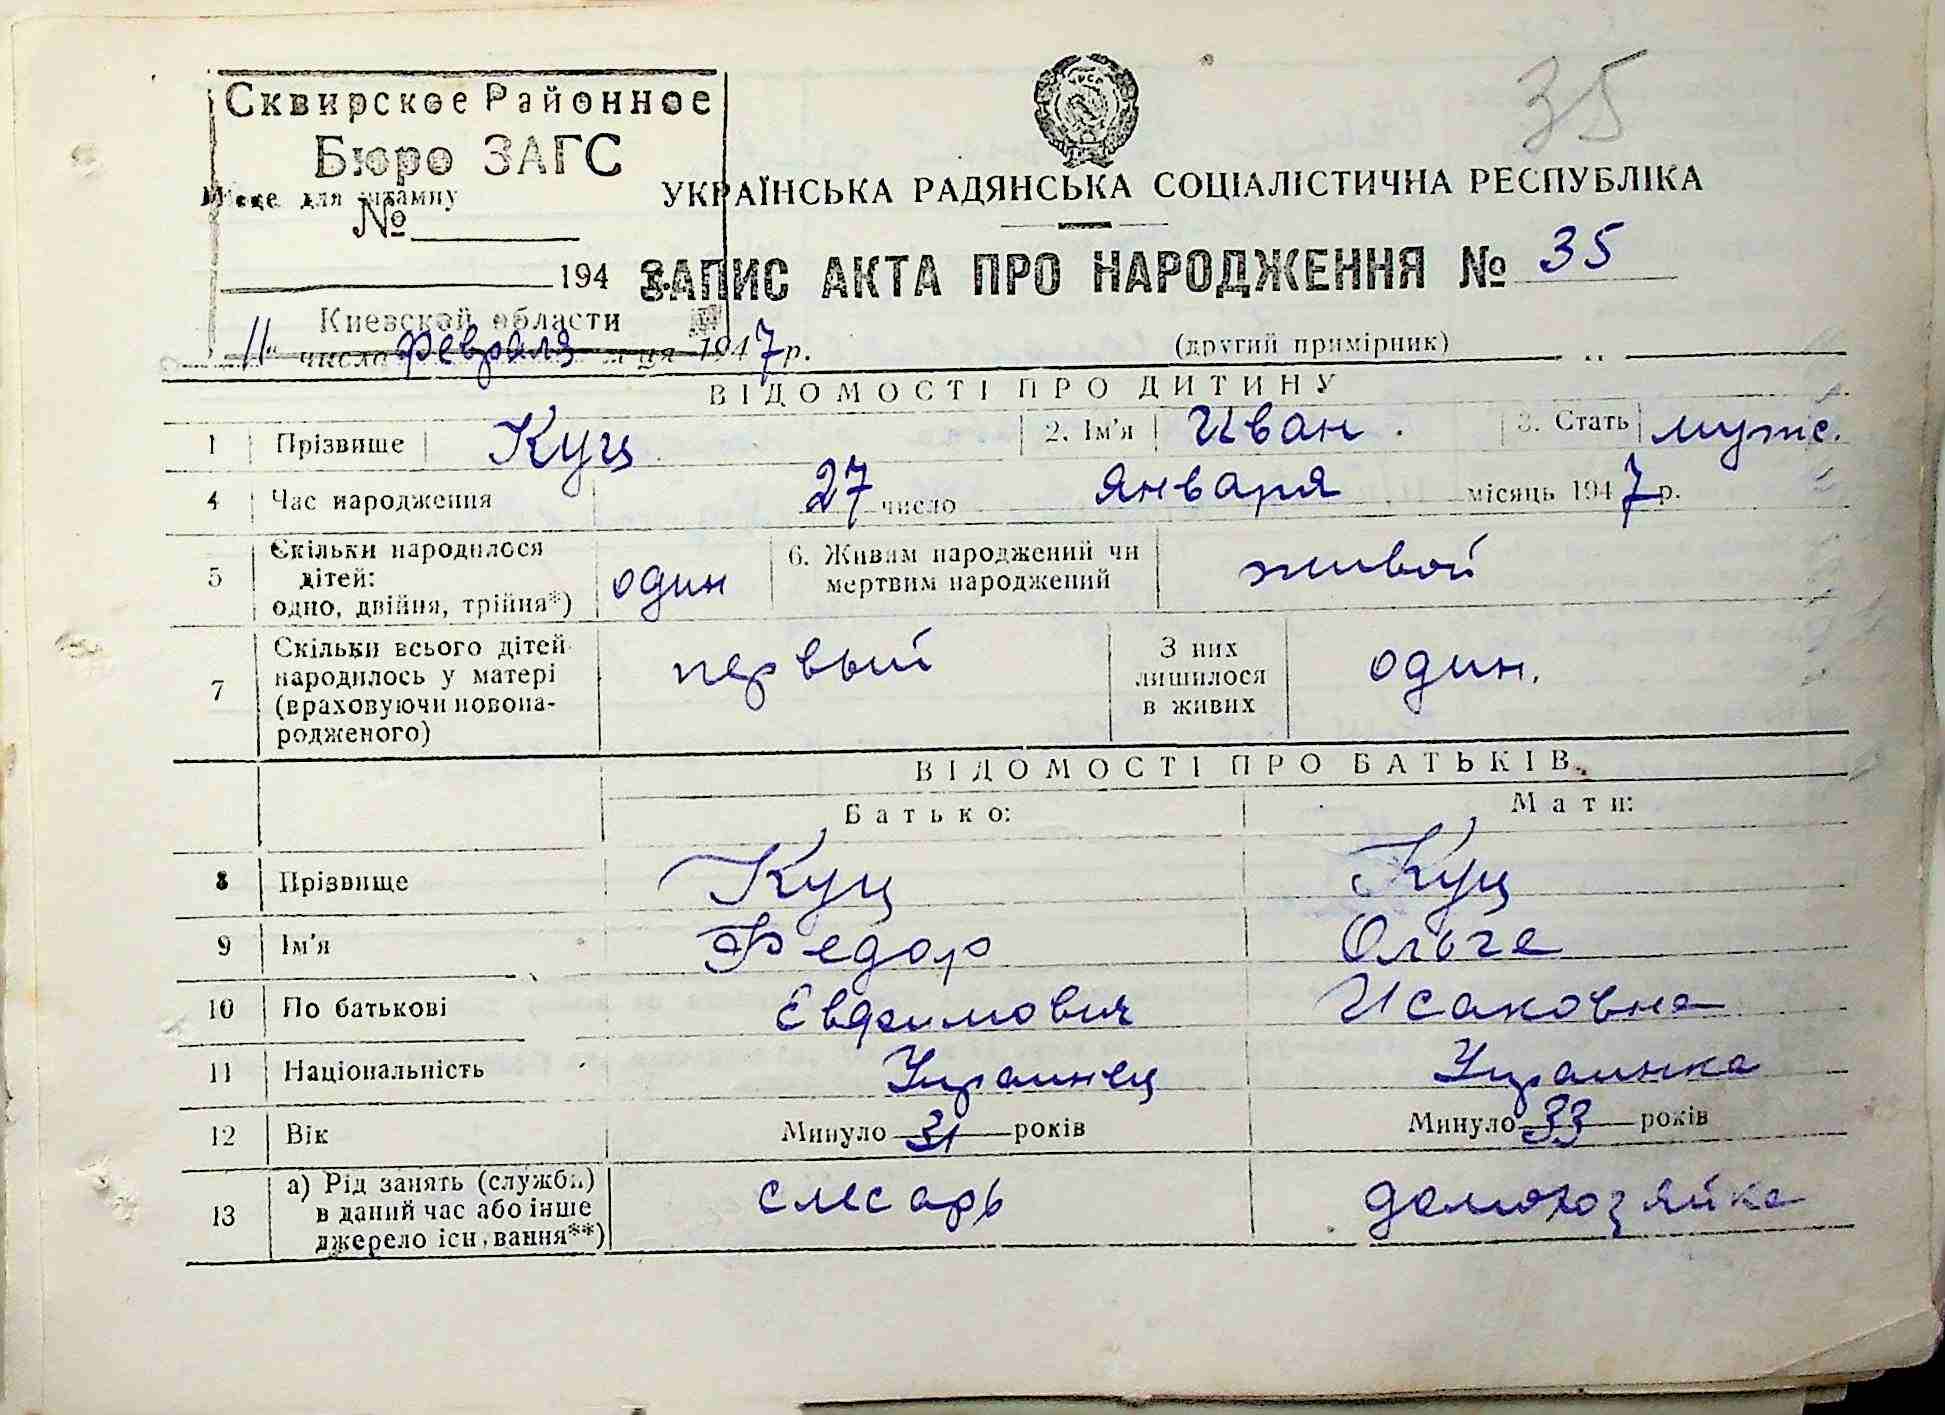 35
Сквирское Районное
Бюро ЗАГС
Місце для штампу
№
194
Киевской области
УКРАЇНСЬКА РАДЯНСЬКА СОЦІАЛІСТИЧНА РЕСПУБЛІКА
ЗАПИС АКТА ПРО НАРОДЖЕННЯ № 35
"11" число февраля м-ця 1947 р. (другий примірник)
ВІДОМОСТІ ПРО ДИТИНУ
1 Прізвище Куц 2. Ім'я Иван. 3. Стать муж.
4 Час народження 27 число января місяць 1947 р.
5 Скільки народилося дітей: одно, двійня, трійня*) один 6. Живим народжений чи мертвим народжений живой
7 Скільки всього дітей народилось у матері (враховуючи новонародженого) первый З них лишилося в живих один.
ВІДОМОСТІ ПРО БАТЬКІВ
Батько: Мати:
8 Прізвище Куц Куц
9 Ім'я Федор Ольга
10 По батькові Евдфимович Исаковна
11 Національність Украинец Украинка
12 Вік Минуло 31 років Минуло 33 років
13 а) Рід занять (служби) в даний час або інше джерело існування**) слесарь домохозяйка